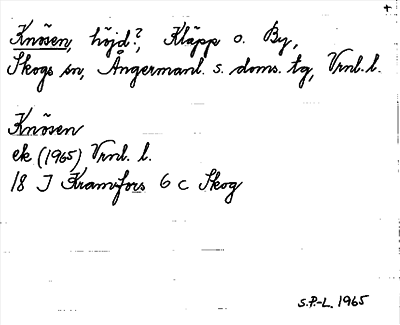 Knösen, höjd?, Kläpp o. By,
Skogs sn, Ångermanl. s. doms. tg, Vrnl. l.
Knösen
ek (1965) Vrnl. l.
18 J Kramfors 6 c Skog
S.P.-L. 1965